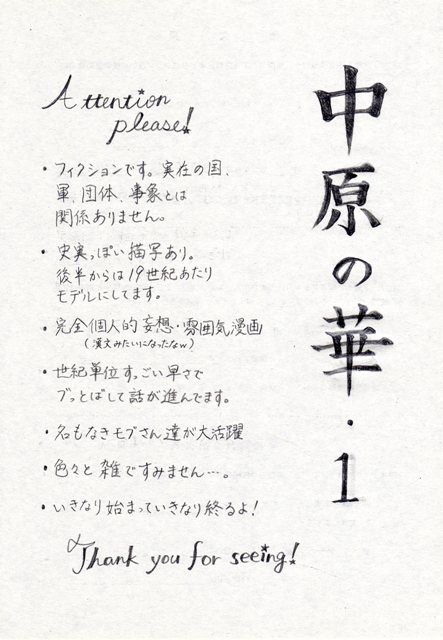 中原の華・1
Attention
please!
・フィクションです。実在の国、
軍、団体、事象とは
関係ありません。
・史実っぽい描写あり。
後半からは19世紀あたり
モデルにしてます。
・完全個人的妄想・雰囲気漫画
(漢文みたいになったなw)
・世紀単位すっごい早さで
ブッとばして話が進んでます。
・名もなきモブさん達が大活躍
・色々と雑ですみません…。
・いきなり始まっていきなり終るよ!
Thank you for seeing!